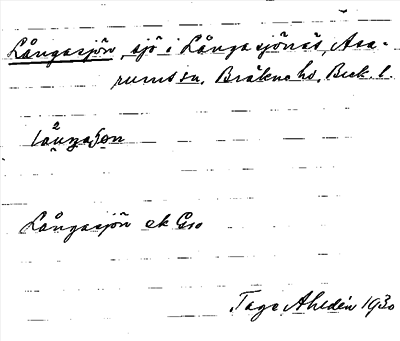 Långasjön, sjö i Långasjönäs, Asa-
rums sn. Bräkne hd. Blek. l.
Långasjön ek Gso
Tage Ahldén 1930